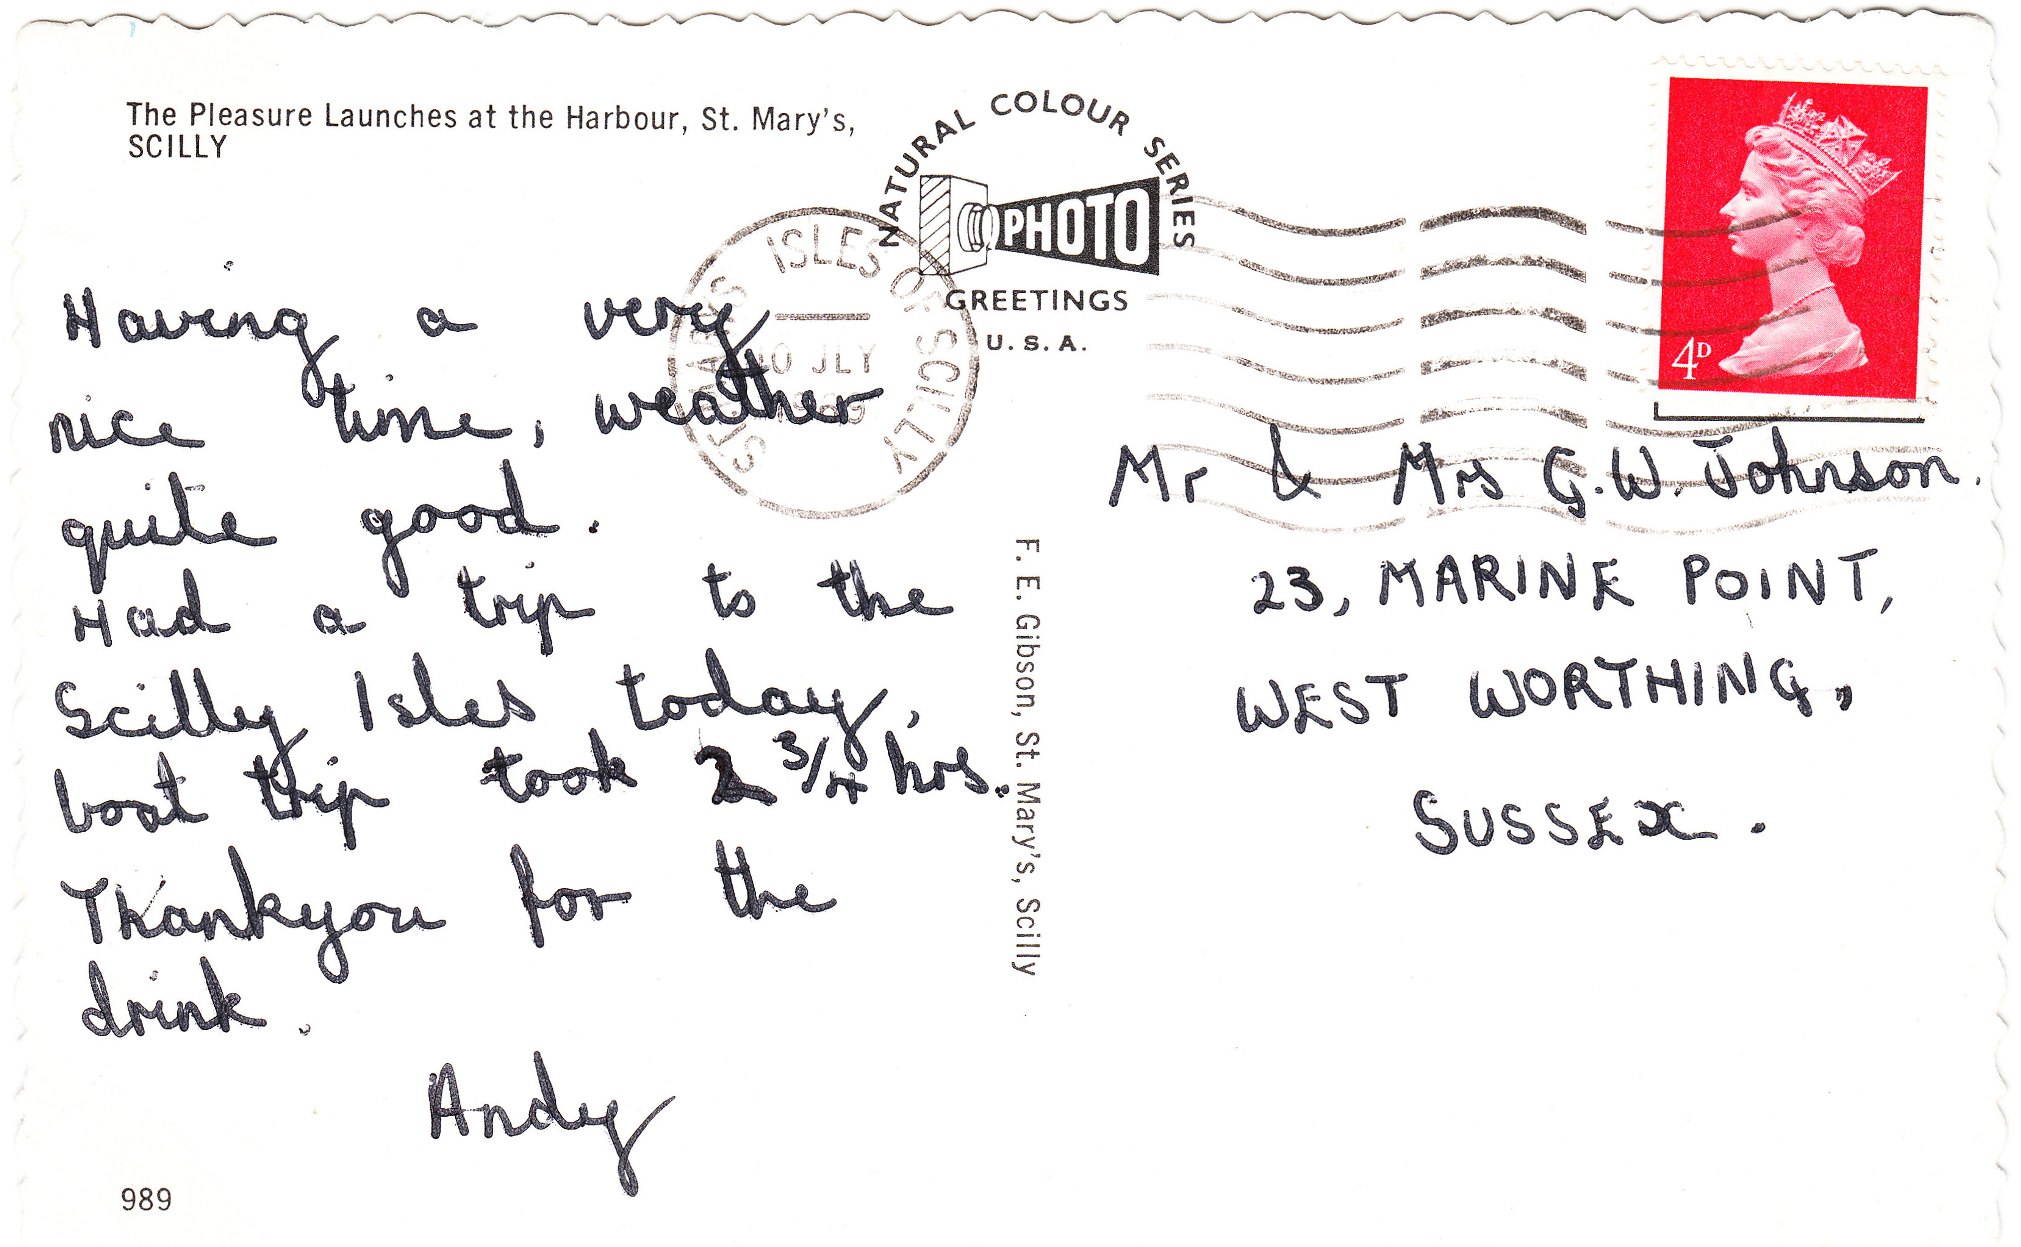 The Pleasure Launches at the Harbour, St. Mary's,
SCILLY
NATURAL COLOUR SERIES
PHOTO
GREETINGS
U. S. A.
ST. MARYS ISLES OF SCILLY
JLY
4D
Having a very
nice time, weather
quite good.
Had a trip to the
Scilly Isles today,
boat trip took 2 3/4 hrs.
Thankyou for the
drink.
Andy
989
F. E. Gibson, St. Mary's, Scilly
Mr & Mrs G.W. Johnson.
23, MARINE POINT,
WEST WORTHING,
SUSSEX.